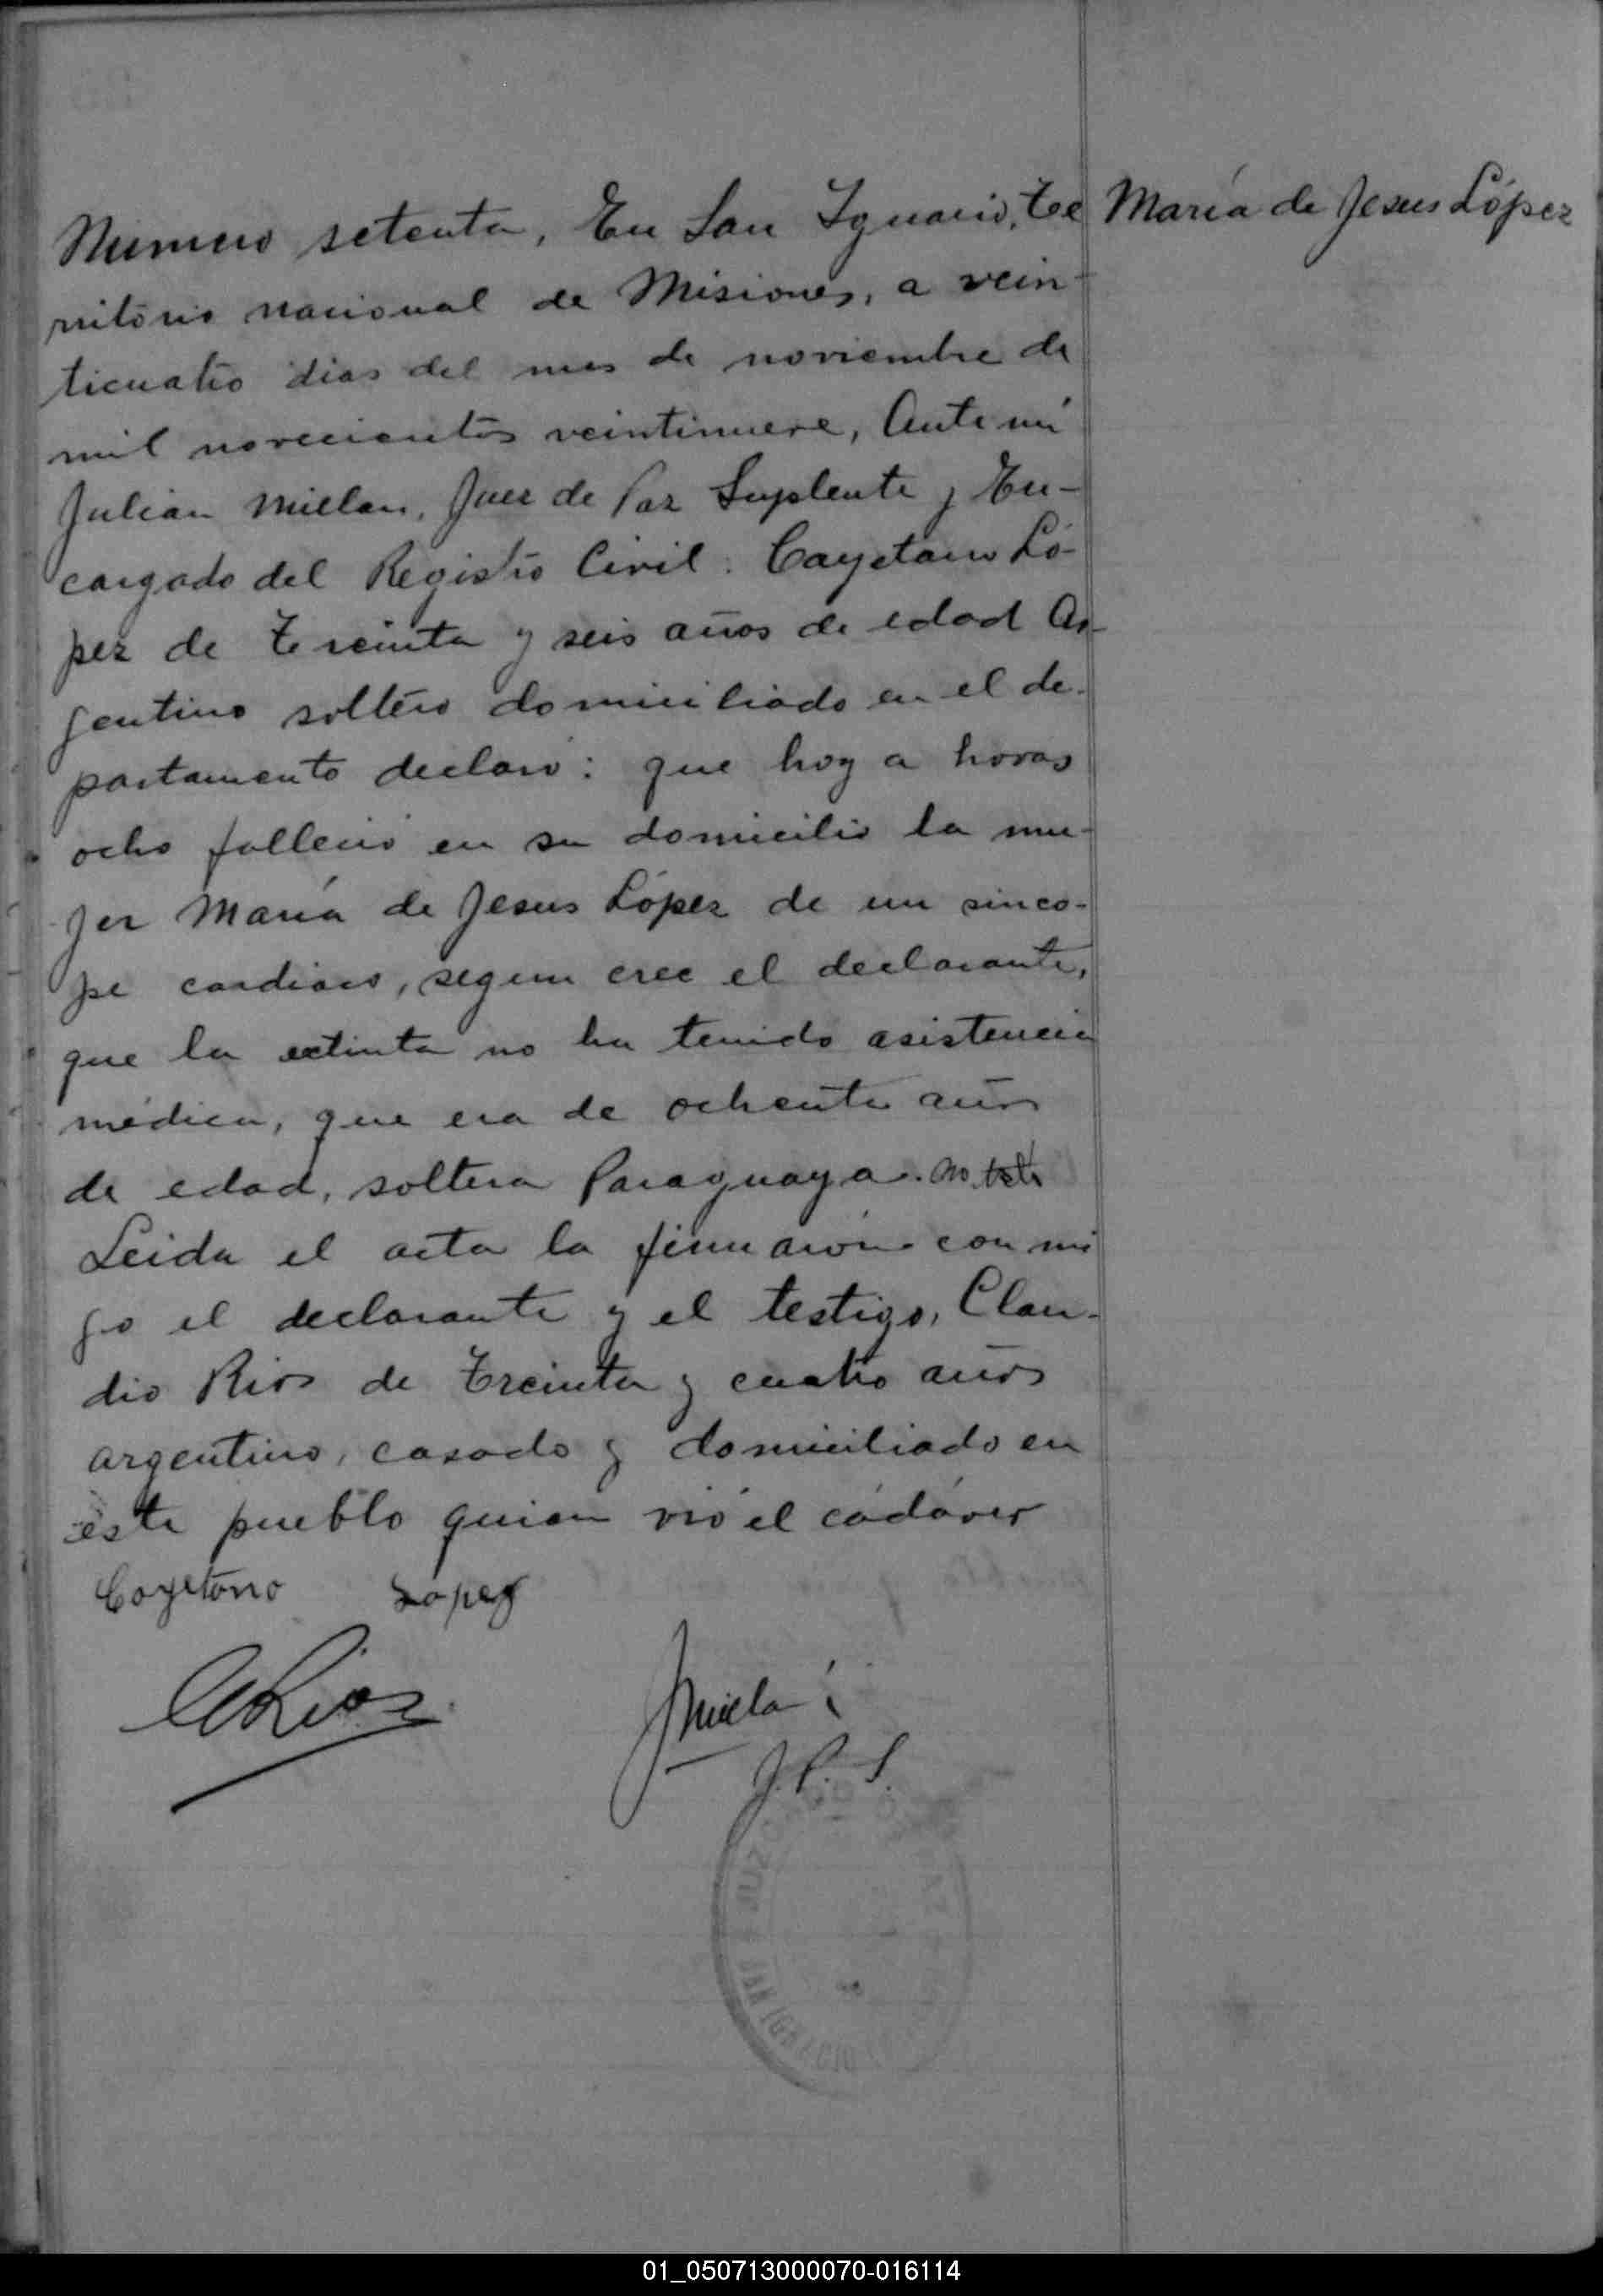 María de Jesus López
Número setenta, En San Ignacio, Te
rritorio nacional de Misiones, a vein-
ticuatro dias del mes de noviembre de
mil novecientos veintinueve, Ante mí
Julian Millan, Juez de Paz Suplente y En-
cargado del Registro Civil: Cayetano Ló-
pez de treinta y seis años de edad Ar-
gentino soltero domiciliado en el de-
partamento declaró: que hoy a horas
ocho falleció en su domicilio la mu-
jer María de Jesus López de un sinco-
pe cardiaco, segun cree el declarante,
que la extinta no ha tenido asistencia
médica, que era de ochenta años
de edad, soltera Paraguaya. no
Leida el acta la firmaron conmi
go el declarante y el testigo, Clau-
dio Rios de treinta y cuatro años
argentino, casado y domiciliado en
este pueblo quien vió el cadáver
Cayetano López
CRios
JMillan
J.P.S.
JUZ
SAN IGNACIO
01_050713000070-016114